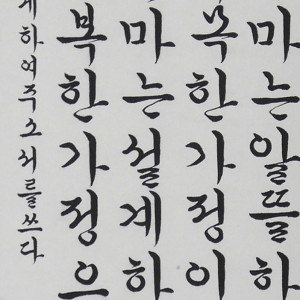 마는알뜰하
목한가정이
마는설계하
복한가정으
하여주소서를쓰다